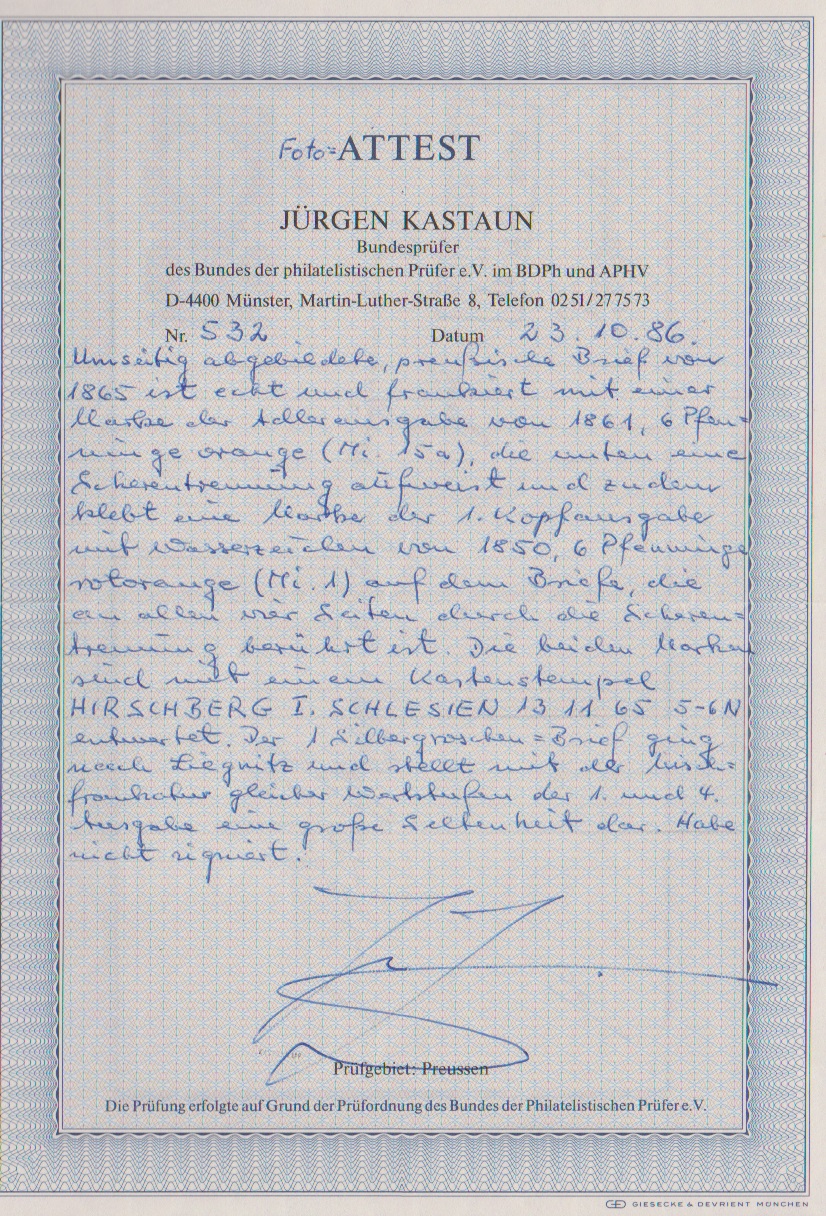 Foto=ATTEST
JÜRGEN KASTAUN
Bundesprüfer
des Bundes der philatelistischen Prüfer e.V. im BDPh und APHV
D-4400 Münster, Martin-Luther-Straße 8, Telefon 0251/277573
Nr. 532 Datum 23.10.86.
Umseitig abgebildete, preußische Brief von
1865 ist echt und frankiert mit einer
Marke der Adlerausgabe von 1861, 6 Pfen=
ninge orange (Mi. 15a), die unten eine
Scherentrennung aufweist und zudem
klebt eine Marke der 1. Kopfausgabe
mit Wasserzeichen von 1850, 6 Pfenninge
rotorange (Mi. 1) auf dem Briefe, die
an allen vier Seiten durch die Scheren=
trennung berührt ist. Die beiden Marken
sind mit einem Kastenstempel
HIRSCHBERG I. SCHLESIEN 13 11 65 5-6N
entwertet. Der 1 Silbergroschen=Brief ging
nach Liegnitz und stellt mit der Misch=
frankatur gleicher Wertstufen der 1. und 4.
Ausgabe eine große Seltenheit dar. Habe
nicht signiert.
Prüfgebiet: Preussen
Die Prüfung erfolgte auf Grund der Prüfordnung des Bundes der Philatelistischen Prüfer e.V.
GIESECKE & DEVRIENT MÜNCHEN